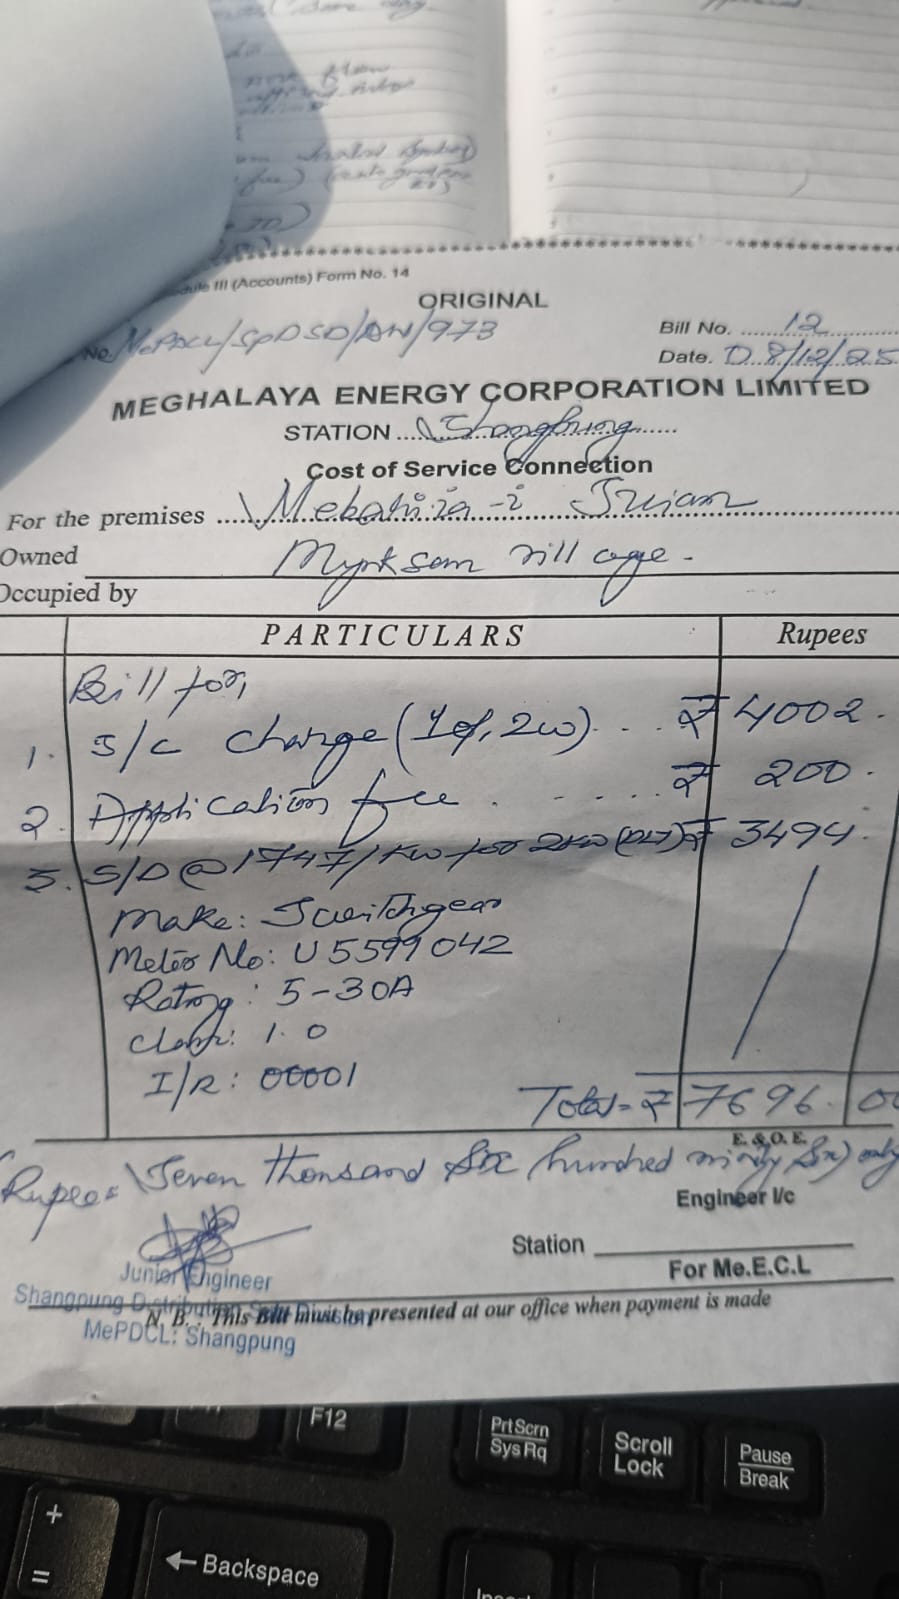 Schedule III (Accounts) Form No. 14
ORIGINAL
No. MePDCL/SPDSD/AW/973
Bill No. 12
Date. D 8/12/25
MEGHALAYA ENERGY CORPORATION LIMITED
STATION Shangpung
Cost of Service Connection
For the premises Mebatiia-i Suiam
Owned Mynksan village.
Occupied by
PARTICULARS Rupees
Bill for,
1. S/C Charge (1φ, 2w) ... ₹ 4002.
2. Application fee ..... ₹ 200.
3. S/D @ 1747/KW for 2KW (DLT) ₹ 3494.
Make: Switchgear
Meter No: U5599042
Rating: 5-30A
Class: 1.0
I/R: 00001
Total = ₹ 7696.00
E. & O. E.
(Rupees Seven thousand Six hundred ninety Six) only
Engineer I/c
Station
For Me.E.C.L
Junior Engineer
Shangpung Distribution
MePDCL: Shangpung
N. B. : This Bill must be presented at our office when payment is made
F12
PrtScrn
SysRq
Scroll
Lock
Pause
Break
+
=
← Backspace